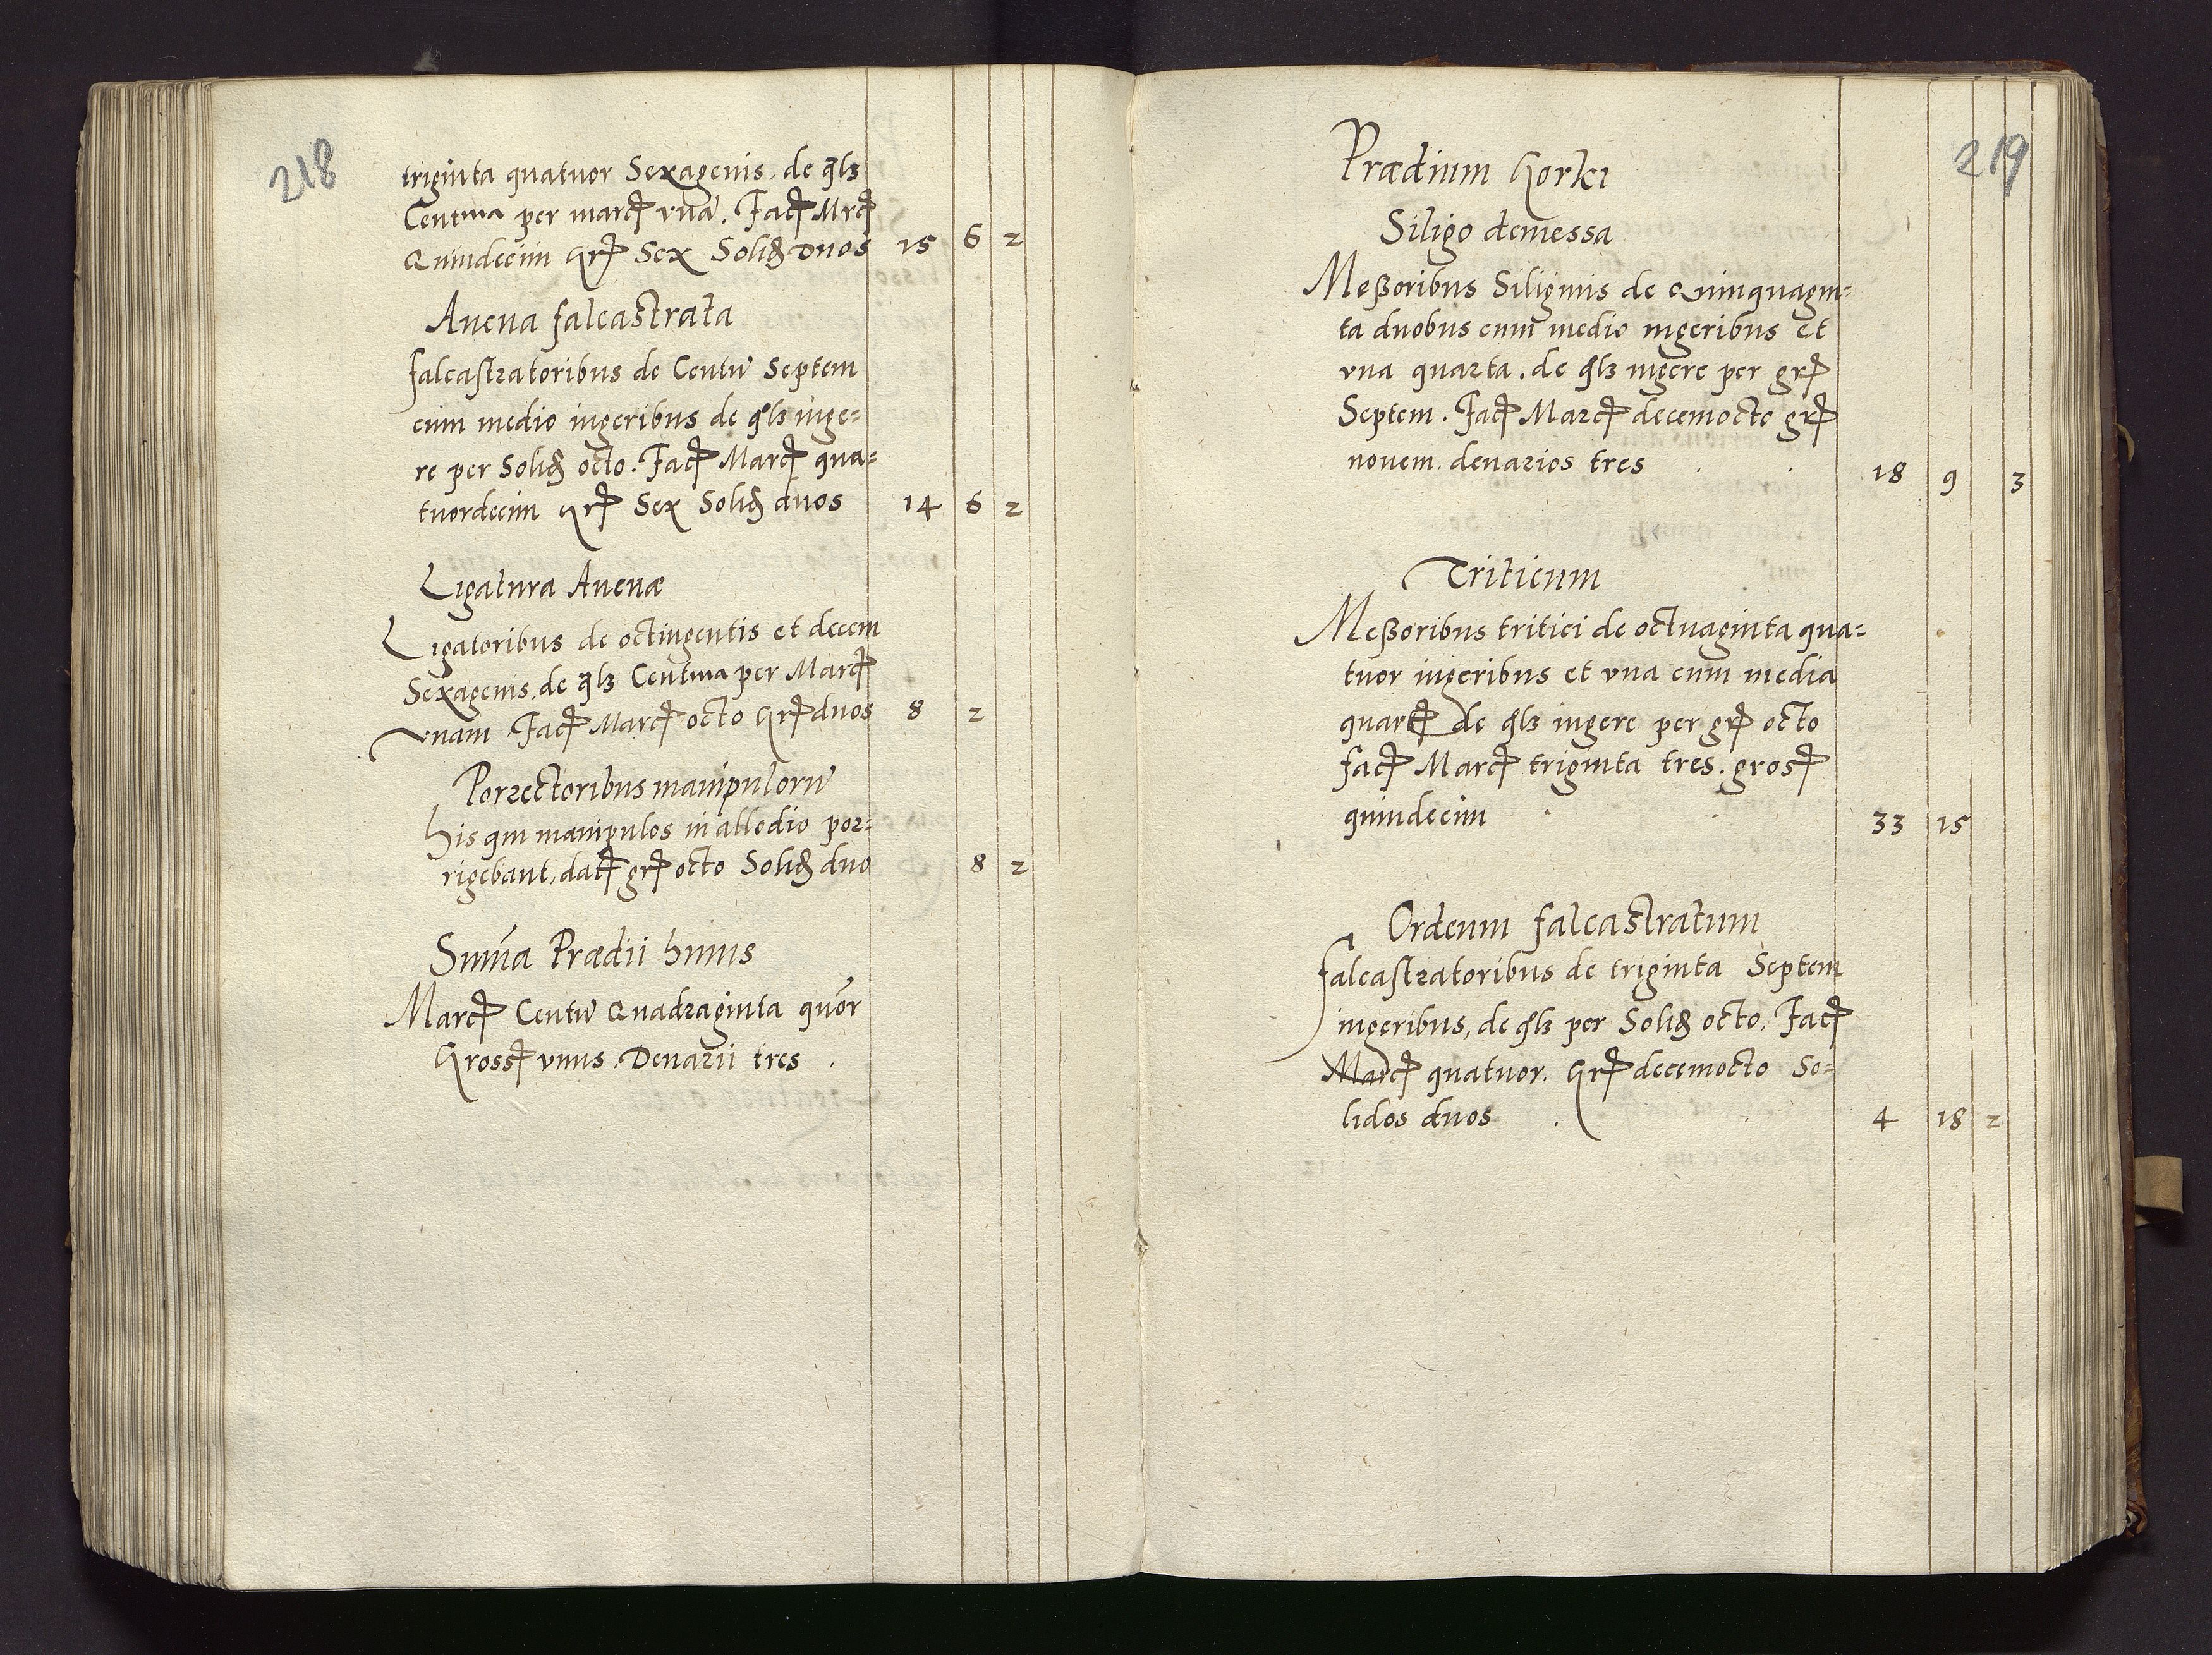 218
triginta quatuor Sexagenis. de qlз
Centena per marcꝭ vnā. Facꝭ Mrcꝭ
Quindecim Grꝭ Sex Solidꝭ Duos 15 6 2
Auena falcastrata
falcastratoribus de Centū Septem
cum medio iugeribus de qlз iuge=
re per Solidꝭ octo. Facꝭ Marcꝭ qua=
tuordecim Grꝭ Sex Solidꝭ duos 14 6 2
Ligatura Auenæ
Ligatoribus de octingentis et decem
Sexagenis. de qlз Centena per Marcꝭ
vnam Facꝭ Marcꝭ octo Grꝭ duos 8 2
Porrectoribus manipulorū
His qui manipulos in allodio por=
rigebant, datꝭ grꝭ octo Solidꝭ duo 8 2
Sum̄a Prædii huius
Marcꝭ Centū Quadraginta quōr
Grossꝭ vnus. Denarii tres .
219
Prædium Gorki
Siligo demessa
Meßoribus Siliginis de Quinquagin=
ta duobus cum medio iugeribus et
vna quarta. de qlз iugere per grꝭ
Septem. Facꝭ Marcꝭ decemocto grꝭ
nouem. denarios tres . . 18 9 3
Triticum
Meßoribus tritici de octuaginta qua=
tuor iugeribus et vna cum media
quartꝭ de qlз iugere per grꝭ octo
facꝭ Marcꝭ triginta tres. grosꝭ
quindecim . . 33 15
Ordeum falcastratum
falcastratoribus de triginta Septem
iugeribus, de qlз per Solidꝭ octo. Facꝭ
Marcꝭ quatuor. Grꝭ decemocto So=
lidos duos . . 4 18 2